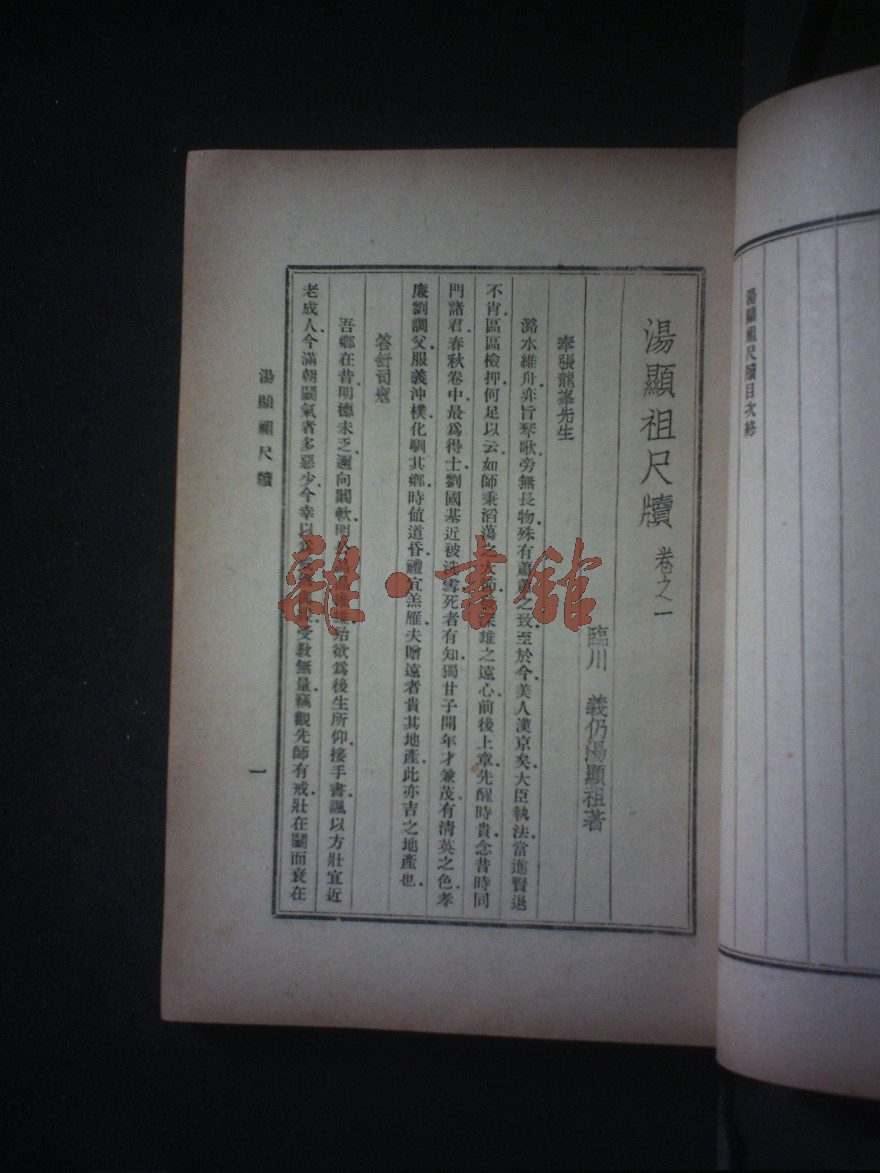 湯顯祖尺牘目次終
湯顯祖尺牘 卷之一
臨川 義仍湯顯祖著
奉張龍峯先生
潞水維舟弈旨琴歌旁無長物殊有蕭蕭之致至於今美人漢京矣大臣執法當進賢退
不肯區區檢押何足以云如師秉滔蕩之大節 雄之遠心前後上章先醒時貴念昔時同
門諸君春秋卷中最爲得士劉國基近被洗雪死者有知獨甘子開年才兼茂有清英之色孝
廉劉調父服義沖樸化馴其鄉時値道昏禮宜羔雁夫贈遠者貴其地產此亦吉之地產也
答舒司寇
吾鄉在昔明德未乏邇向闊軼明公 殆欲爲後生所仰接手書諷以方壯宜近
老成人今滿朝鬭氣者多惡少今幸以 受教無量竊觀先師有戒壯在鬭而衰在
湯顯祖尺牘
一
雜·書館